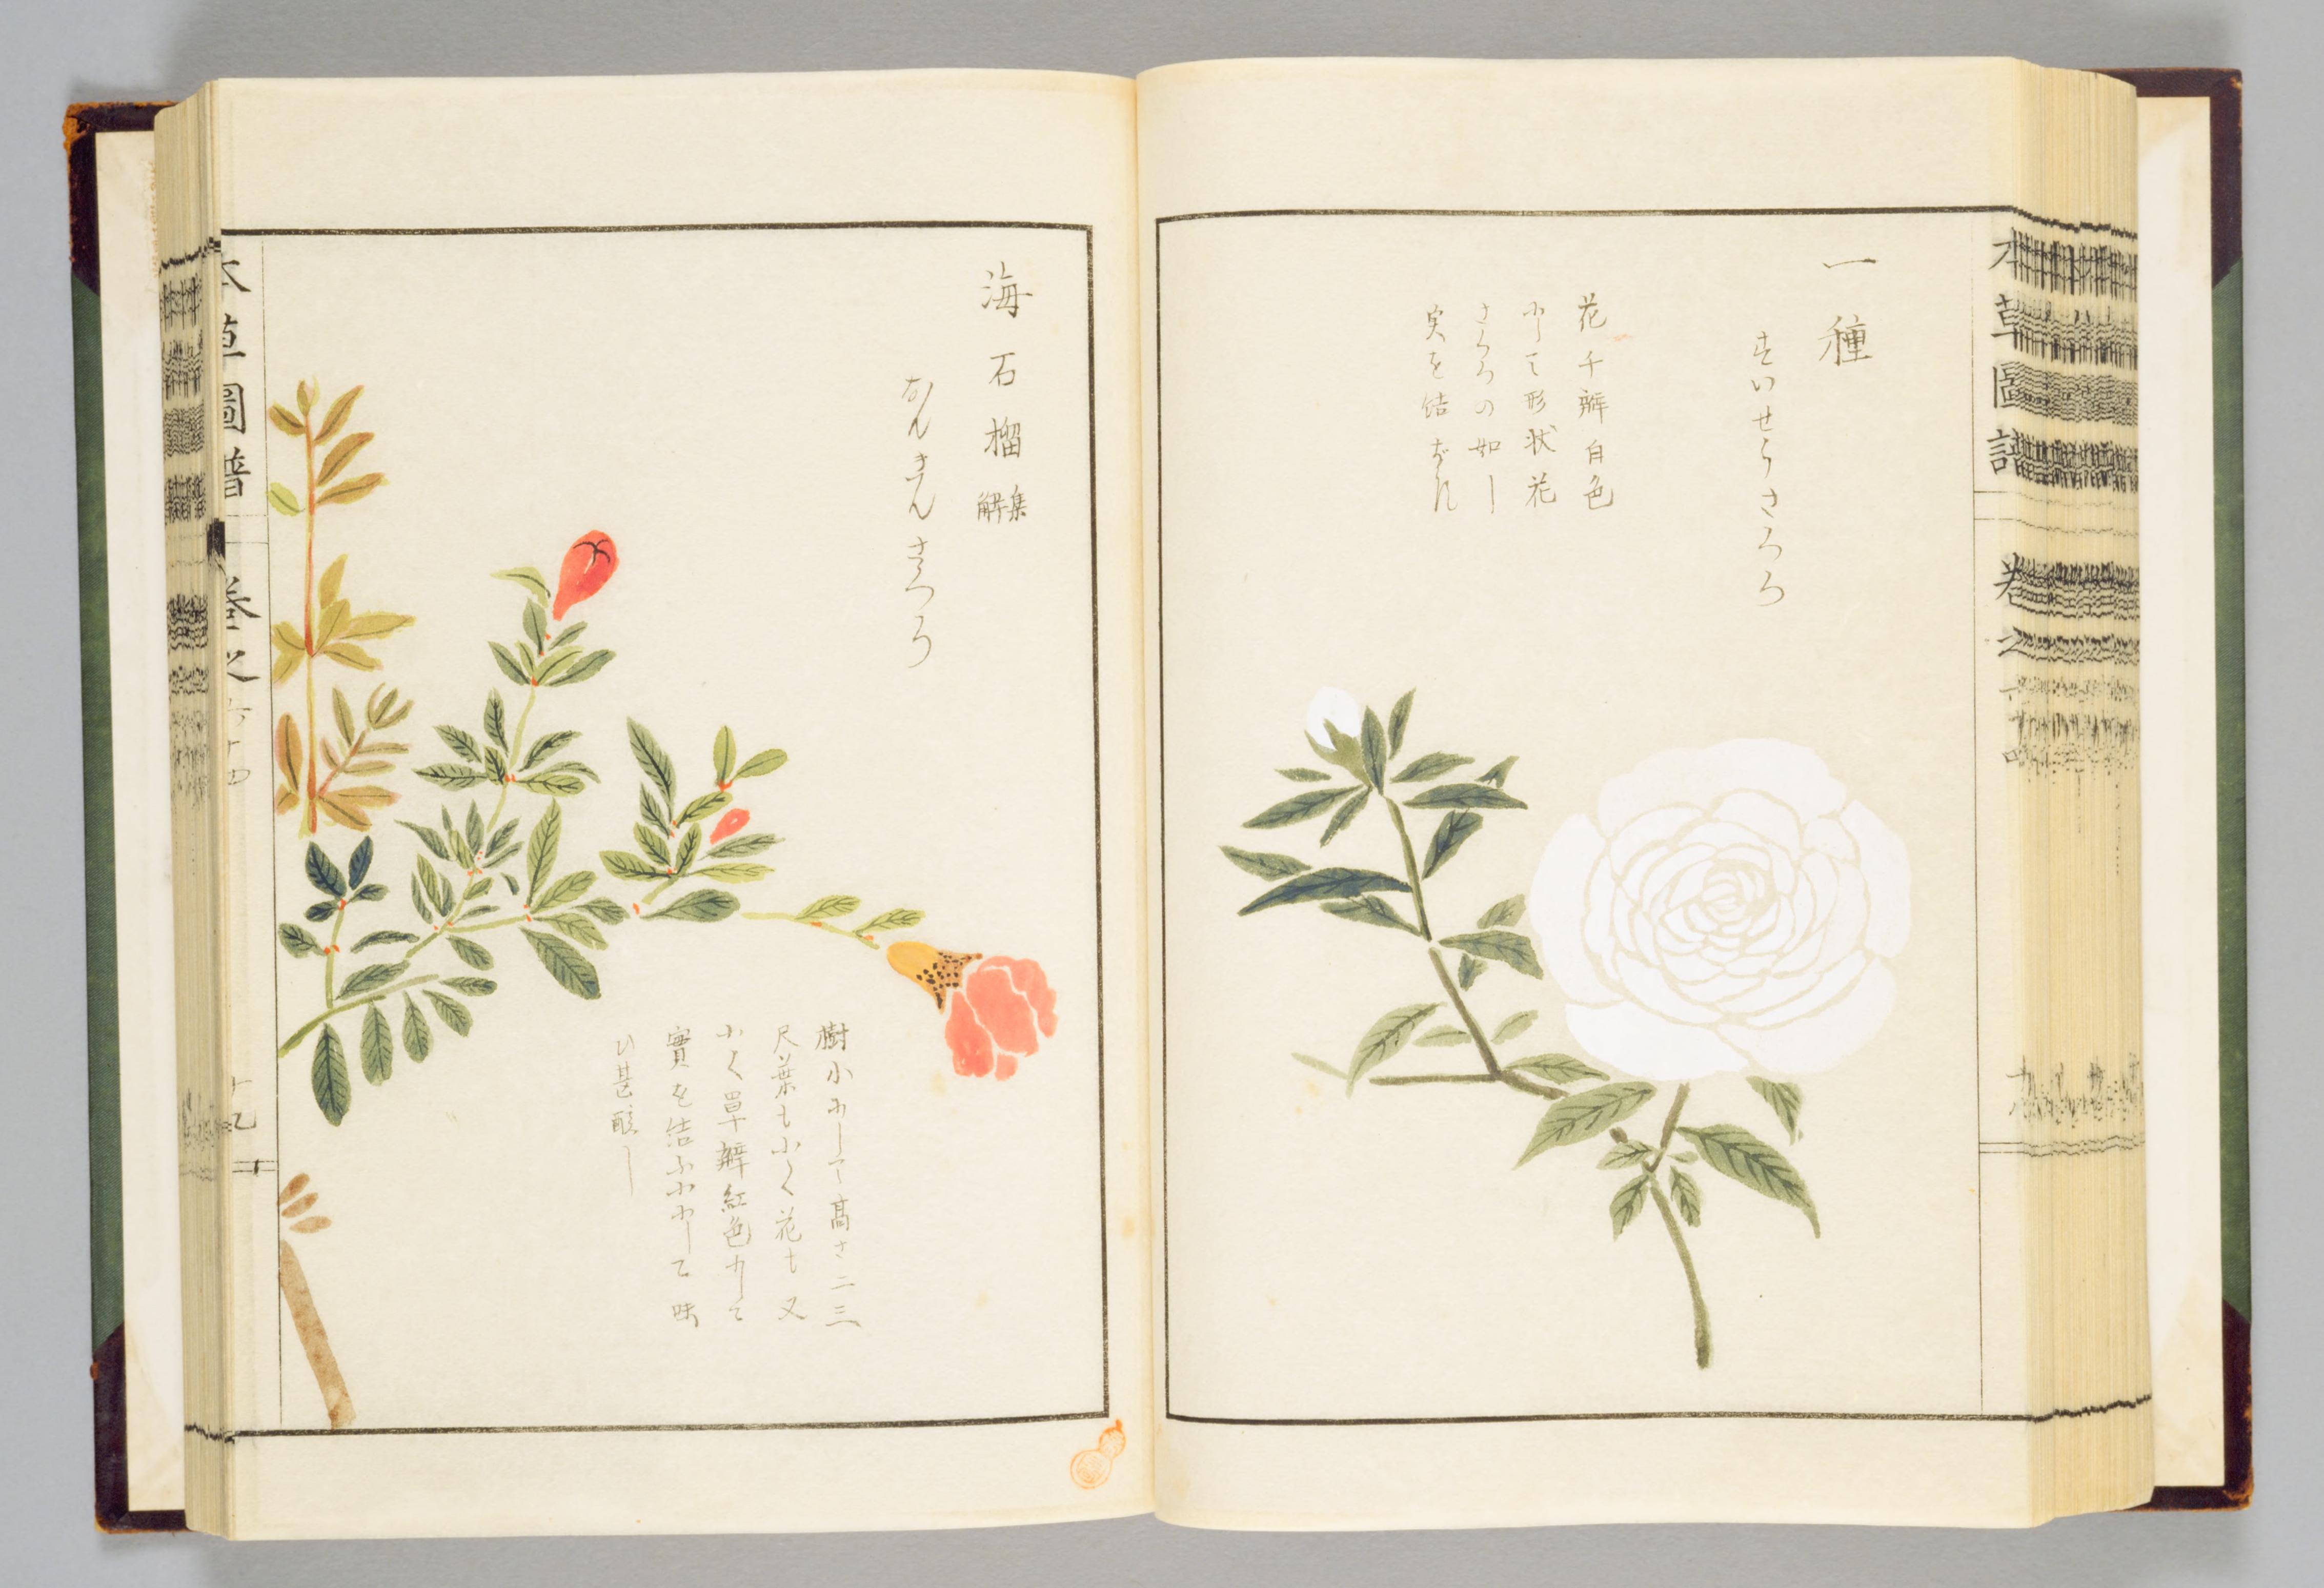 本草圖譜 卷之六十四
一種
すいせうさくろ
花千瓣白色
にて形状花
さくろの如し
実を結ばす
海石榴 集解
なんきんさくろ
樹小にして高さ二三
尺葉も小く花も又
小く単瓣紅色にして
實を結ふ小にして味
ひ甚酸し
本草圖譜 卷之六十四